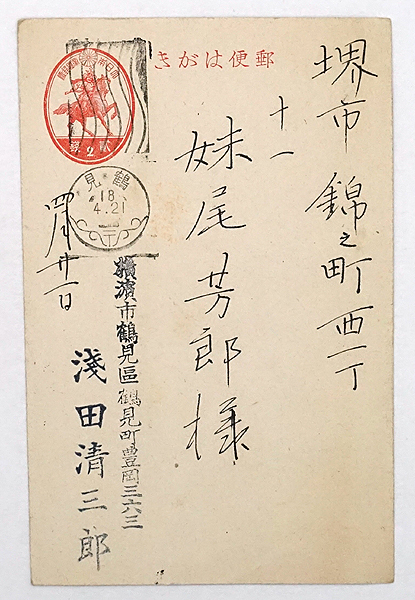 郵便はがき
堺市錦之町西一丁
十一
妹尾芳郎様
貳 2 錢
鶴見
18
4.21
四月廿一日
横濱市鶴見區鶴見町豊岡三六三
淺田清三郎